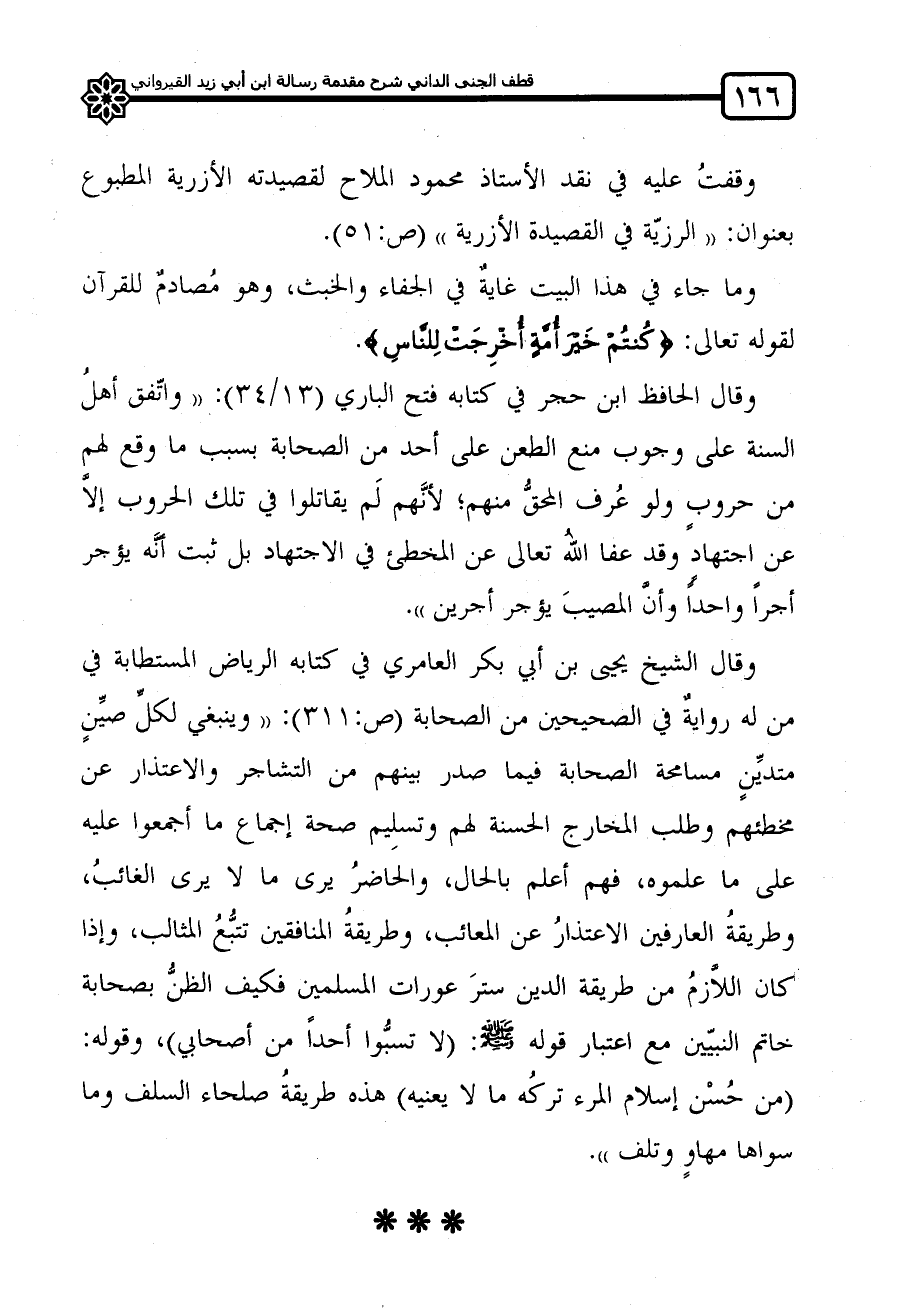 ١٦٦
قطف الجنى الداني شرح مقدمة رسالة ابن أبي زيد القيرواني
وقفتُ عليه في نقد الأستاذ محمود الملاح لقصيدته الأزرية المطبوع
بعنوان: « الرزيّة في القصيدة الأزرية » (ص:٥١).
وما جاء في هذا البيت غايةٌ في الجفاء والخبث، وهو مُصادمٌ للقرآن
لقوله تعالى: ﴿كُنتُمْ خَيْرَ أُمَّةٍ أُخْرِجَتْ لِلنَّاسِ﴾.
وقال الحافظ ابن حجر في كتابه فتح الباري (٣٤/١٣): « واتّفق أهلُ
السنة على وجوب منع الطعن على أحد من الصحابة بسبب ما وقع لهم
من حروبٍ ولو عُرف المحقُّ منهم؛ لأنَّهم لَم يقاتلوا في تلك الحروب إلاَّ
عن اجتهادٍ وقد عفا اللهُ تعالى عن المخطئ في الاجتهاد بل ثبت أنَّه يؤجر
أجراً واحداً وأنَّ المصيبَ يؤجر أجرين ».
وقال الشيخ يحيى بن أبي بكر العامري في كتابه الرياض المستطابة في
من له روايةٌ في الصحيحين من الصحابة (ص:٣١١): « وينبغي لكلِّ صيِّنٍ
متديِّنٍ مسامحة الصحابة فيما صدر بينهم من التشاجر والاعتذار عن
مخطئهم وطلب المخارج الحسنة لهم وتسليم صحة إجماع ما أجمعوا عليه
على ما علموه، فهم أعلم بالحال، والحاضرُ يرى ما لا يرى الغائبُ،
وطريقةُ العارفين الاعتذارُ عن المعائب، وطريقةُ المنافقين تتبُّعُ المثالب، وإذا
كان اللاَّزمُ من طريقة الدين سترَ عورات المسلمين فكيف الظنُّ بصحابة
خاتم النبيّين مع اعتبار قوله ﷺ: (لا تسبُّوا أحداً من أصحابي)، وقوله:
(من حُسْن إسلام المرء تركُه ما لا يعنيه) هذه طريقةُ صلحاء السلف وما
سواها مهاوٍ وتلف ».